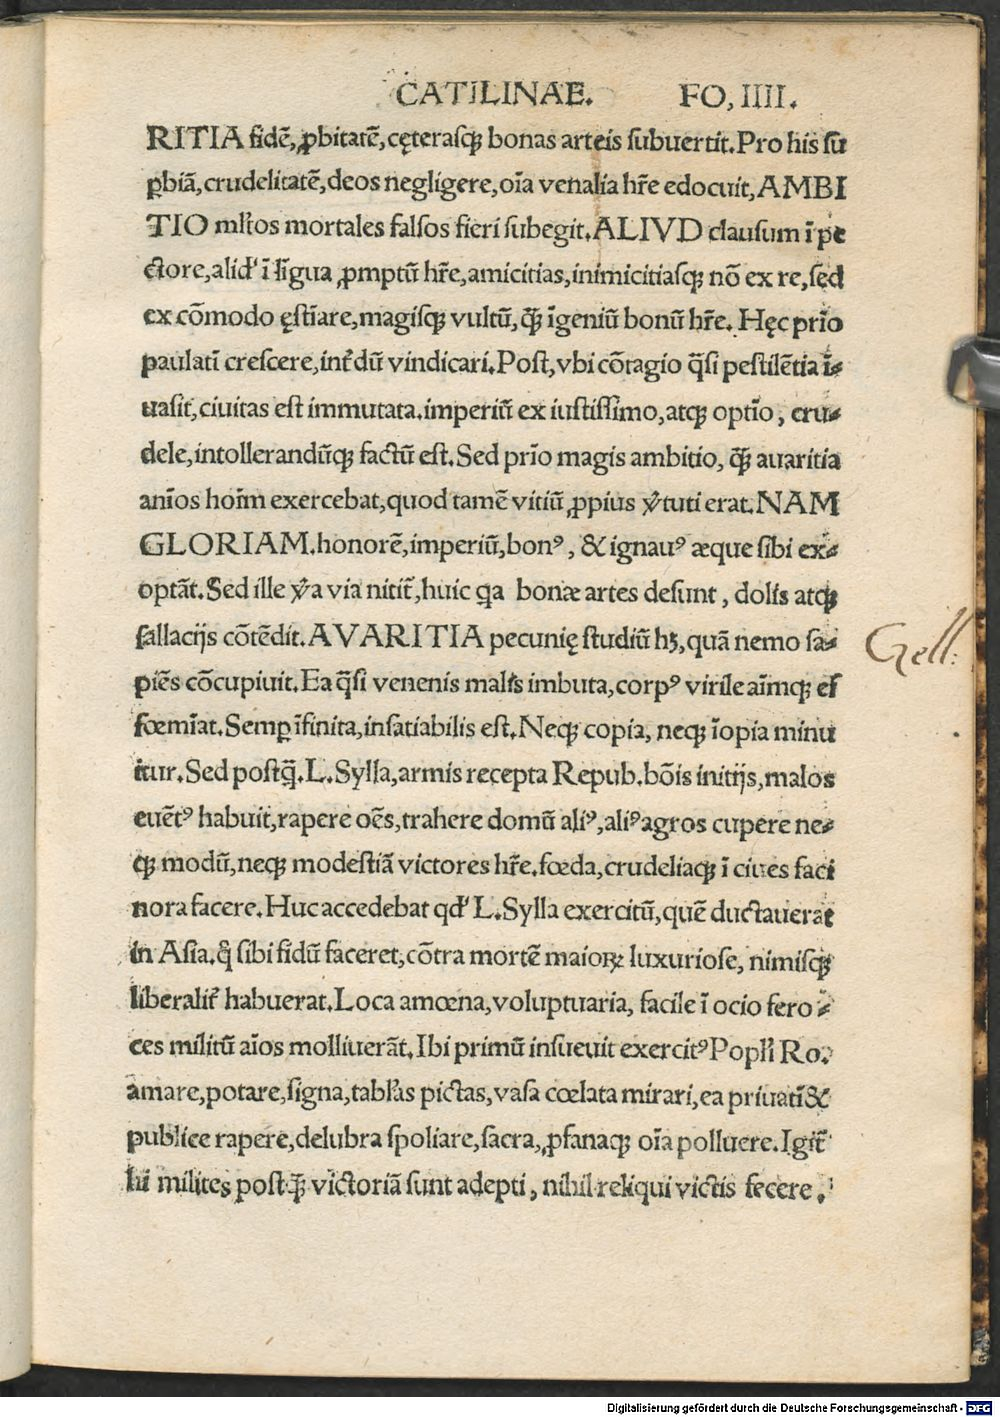 CATILINAE. FO, IIII.
RITIA fidē, ꝓbitatē, cęterasqꝫ bonas arteis ſubuertit. Pro his ſu
ꝑbiā, crudelitatē, deos negligere, oīa venalia hr̄e edocuit, AMBI
TIO ml'tos mortales falſos fieri ſubegit. ALIVD clauſum ī pe
ctore, alid' ī līgua ꝓmptū hr̄e, amicitias, inimicitiaſqꝫ nō ex re, ſed
ex cōmodo ęſtīare, magiſqꝫ vultū, qꝫ̄ īgeniū bonū hr̄e. Hęc prīo
paulatī creſcere, inťdū vindicari. Poſt, vbi cōtagio q̄ſi peſtilētia ī⸗
uaſit, ciuitas eſt immutata. imperiū ex iuſtiſſimo, atqꝫ optīo, cru⸗
dele, intollerandūqꝫ factū eſt. Sed prīo magis ambitio, qꝫ̄ avaritia
anīos hoīm exercebat, quod tamē vitiū ꝓpius v̓tuti erat. NAM
GLORIAM. honorē, imperiū, bonꝰ, & ignauꝰ æque ſibi ex⸗
optāt. Sed ille v̓a via nitiť, huic qa bonæ artes deſunt, dolis atqꝫ
fallacijs cōtēdit. AVARITIA pecunię ſtudiū hꝫ, quā nemo ſa⸗
piēs cōcupiuit. Ea q̄ſi venenis malis imbuta, corpꝰ virile aīmqꝫ ef
fœmīat. Semꝑ īfinita, inſatiabilis eſt. Neqꝫ copia, neqꝫ īopia minu
itur. Sed poſtq̄. L. Sylla, armis recepta Repub. bōis initijs, malos
euētꝰ habuit, rapere oēs, trahere domū aliꝰ, aliꝰ agros cupere ne⸗
qꝫ modū, neqꝫ modeſtiā victores hr̄e. fœda, crudeliaqꝫ ī ciues faci
nora facere. Huc accedebat qd' L. Sylla exercitū, quē ductauerat
in Aſia. q̊ ſibi fidū faceret, cōtra mortē maioꝝ luxurioſe, nimiſqꝫ
liberaliť habuerat. Loca amœna, voluptuaria, facile ī ocio fero⸗
ces militū aīos molliuerāt. Ibi primū inſueuit exercitꝰ Popl'i Ro.
amare, potare, ſigna, tabl'as pictas, vaſa cœlata mirari, ea priuatī &
publice rapere, delubra ſpoliare, ſacra, ꝓfanaqꝫ oīa polluere. Igiť
hi milites poſtqꝫ̄ victoriā ſunt adepti, nihil reliqui victis fecere.
Gell:
Digitalisierung gefördert durch die Deutsche Forschungsgemeinschaft - DFG